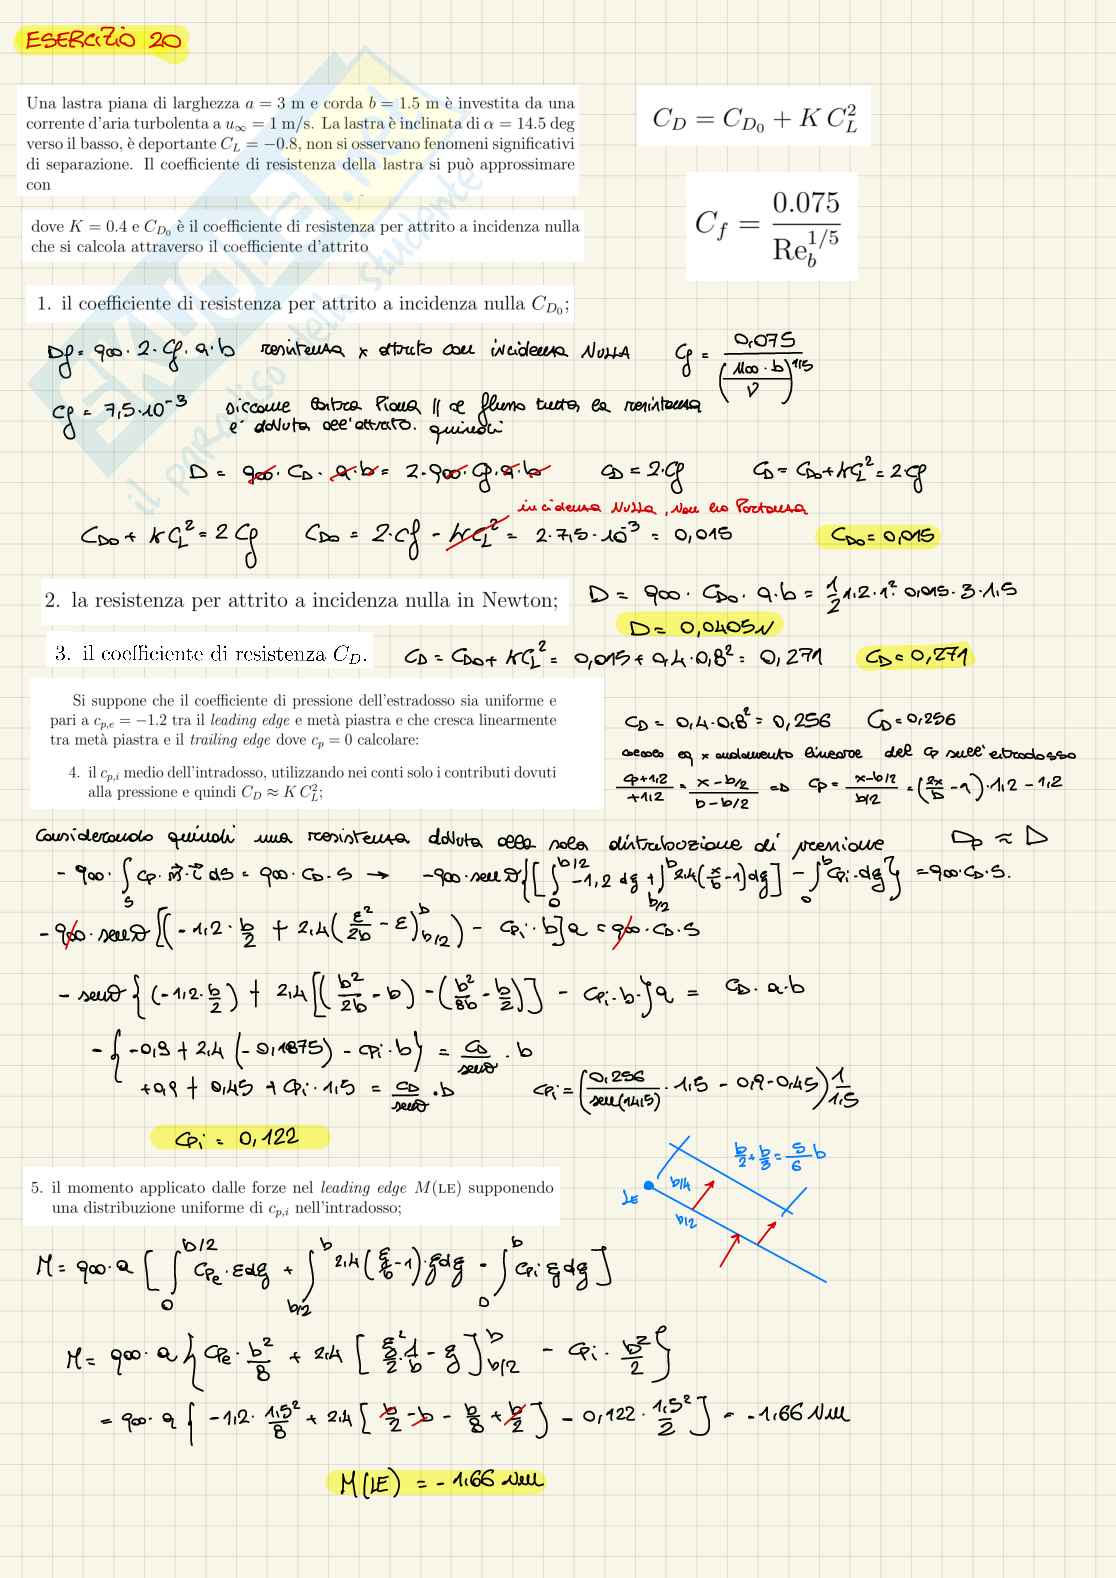 ESERCIZIO 20
Una lastra piana di larghezza a = 3 m e corda b = 1.5 m è investita da una
corrente d'aria turbolenta a u∞ = 1 m/s. La lastra è inclinata di α = 14.5 deg
verso il basso, è deportante C_L = −0.8, non si osservano fenomeni significativi
di separazione. Il coefficiente di resistenza della lastra si può approssimare
con
C_D = C_D0 + K C_L^2
dove K = 0.4 e C_D0 è il coefficiente di resistenza per attrito a incidenza nulla
che si calcola attraverso il coefficiente d'attrito
C_f = 0.075 / Re_b^1/5
1. il coefficiente di resistenza per attrito a incidenza nulla C_D0;
Df = q∞ · 2 · Cf · a · b resistenza x attrito con incidenza NULLA Cf = 0,075 / (μ∞ · b / ν)^1/5
Cf = 7,5 · 10^-3 Siccome lastra Piana || al flusso tutta la resistenza
è dovuta all'attrito. quindi
D = q∞ · CD · a · b = 2 · q∞ · Cf · a · b CD = 2 · Cf CD = CD0 + KCL^2 = 2Cf
incidenza NULLA, Non ho Portanza
CD0 + KCL^2 = 2Cf CD0 = 2 · Cf - KCL^2 = 2 · 7,5 · 10^-3 = 0,015 CD0 = 0,015
2. la resistenza per attrito a incidenza nulla in Newton;
D = q∞ · CD0 · a · b = 1/2 1.2 · 1^2 · 0,015 · 3 · 1.5
D = 0,0405N
3. il coefficiente di resistenza C_D.
CD = CD0 + KCL^2 = 0,015 + 0,4 · 0,8^2 = 0,271 CD = 0,271
Si suppone che il coefficiente di pressione dell'estradosso sia uniforme e
pari a c_p,e = −1.2 tra il leading edge e metà piastra e che cresca linearmente
tra metà piastra e il trailing edge dove c_p = 0 calcolare:
4. il c_p,i medio dell'intradosso, utilizzando nei conti solo i contributi dovuti
alla pressione e quindi C_D ≈ K C_L^2;
CD = 0,4 · 0,8^2 = 0,256 CD = 0,256
eq x andamento lineare del cp sull'estradosso
cp+1,2 / +1,2 = x - b/2 / b - b/2 => cp = x - b/2 / b/2 = (2x/b - 1) · 1,2 - 1,2
Considerando quindi una resistenza dovuta alla sola distribuzione di pressione Dp ≈ D
- q∞ · ∫_S cp · n · i dS = q∞ · CD · S → - q∞ · senθ {[∫_0^b/2 -1,2 dξ + ∫_b/2^b 2,4 (x/b - 1) dξ] - ∫_0^b Cpi · dξ} = q∞ · CD · S.
- q∞ · senθ [(-1,2 · b/2 + 2,4 (ξ^2/2b - ξ)_b/2^b) - Cpi · b] a = q∞ · CD · S
- senθ {(-1,2 · b/2) + 2,4 [(b^2/2b - b) - (b^2/8b - b/2)] - Cpi · b ·} a = CD · a · b
- {-0,9 + 2,4 (-0,1875) - cpi · b} = CD/senθ · b
+0,9 + 0,45 + Cpi · 1,5 = CD/senθ · b cpi = (0,256 / sen(14,5) · 1,5 - 0,9 - 0,45) 1/1,5
Cpi = 0,122
b/2 + b/3 = 5/6 b
b/4
LE
b/2
5. il momento applicato dalle forze nel leading edge M(LE) supponendo
una distribuzione uniforme di c_p,i nell'intradosso;
M = q∞ · a [∫_0^b/2 Cpe · ξ dξ + ∫_b/2^b 2,4 (ξ/b - 1) · ξ dξ - ∫_0^b Cpi ξ dξ]
M = q∞ · a {Cpe · b^2/8 + 2,4 [ξ^2/2 · 1/b - ξ]_b/2^b - Cpi · b^2/2}
= q∞ · a {-1,2 · 1,5^2/8 + 2,4 [b/2 - b - b/8 + b/2] - 0,122 · 1,5^2/2} = -1.66 Nm
M(LE) = -1.66 Nm